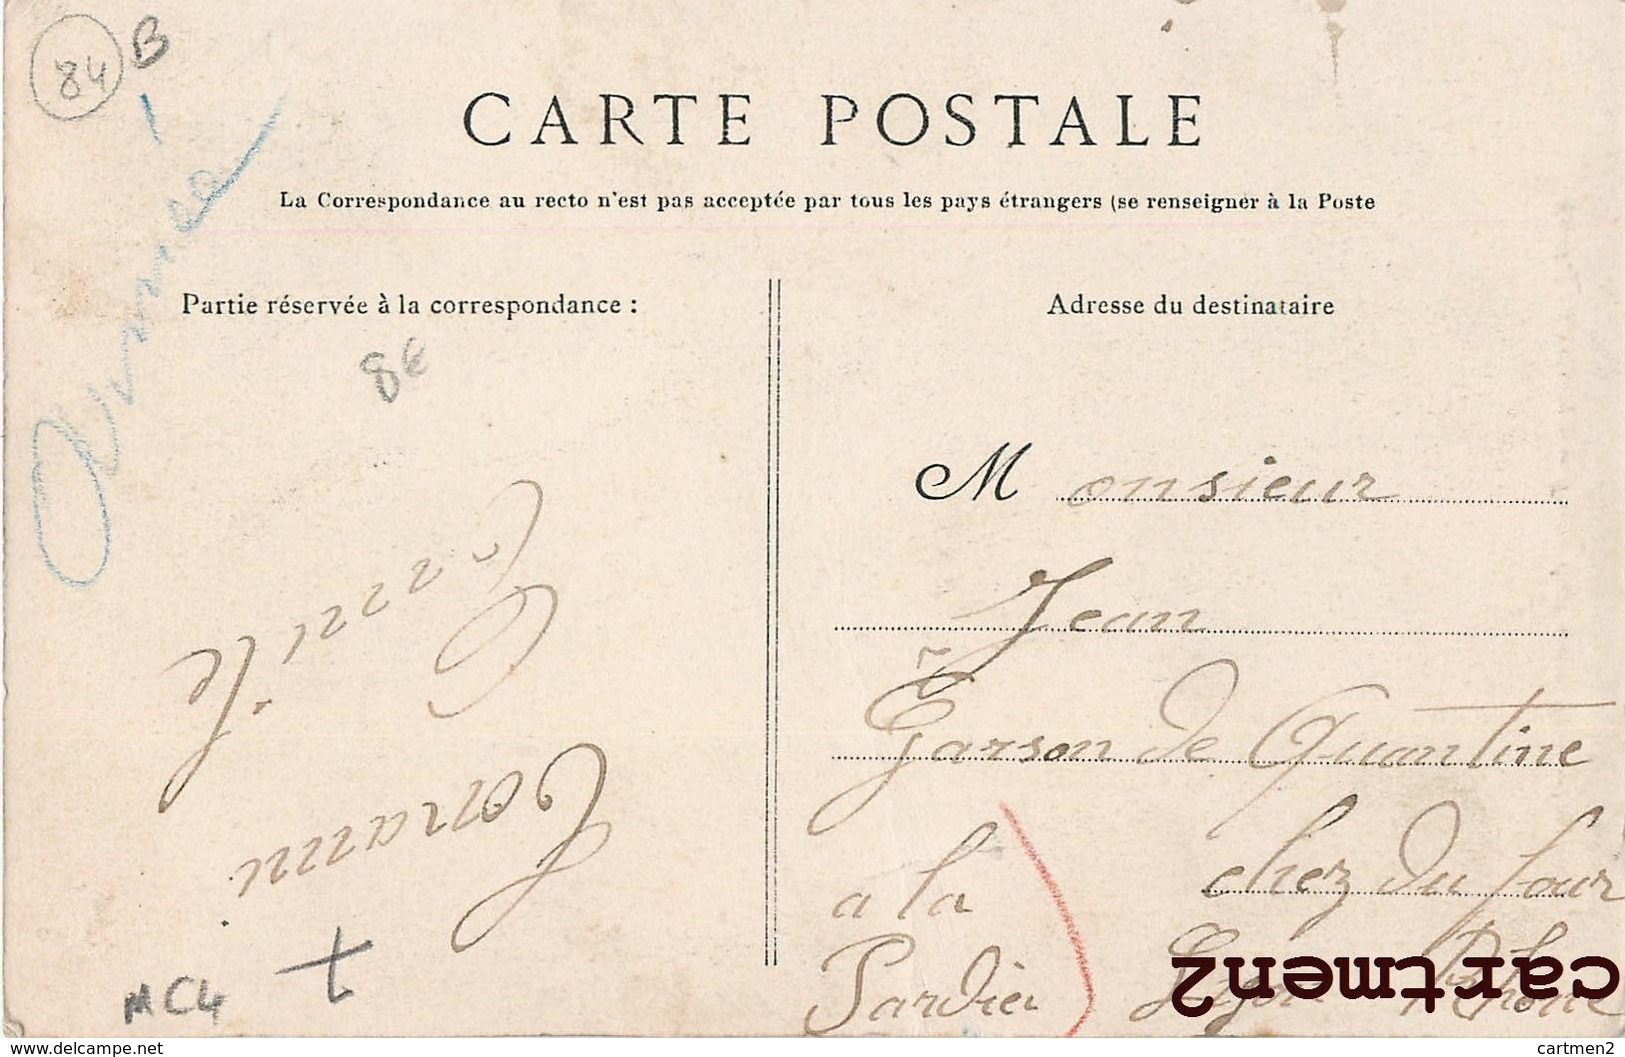 84
B
CARTE POSTALE
La Correspondance au recto n'est pas acceptée par tous les pays étrangers (se renseigner à la Poste
Partie réservée à la correspondance :
8€
MC4
Adresse du destinataire
Monsieur
Jean
Garson de Quantine
chez du four
a la
Pardieu
Lyon Rhone
cartmen2
www.delcampe.net
cartmen2